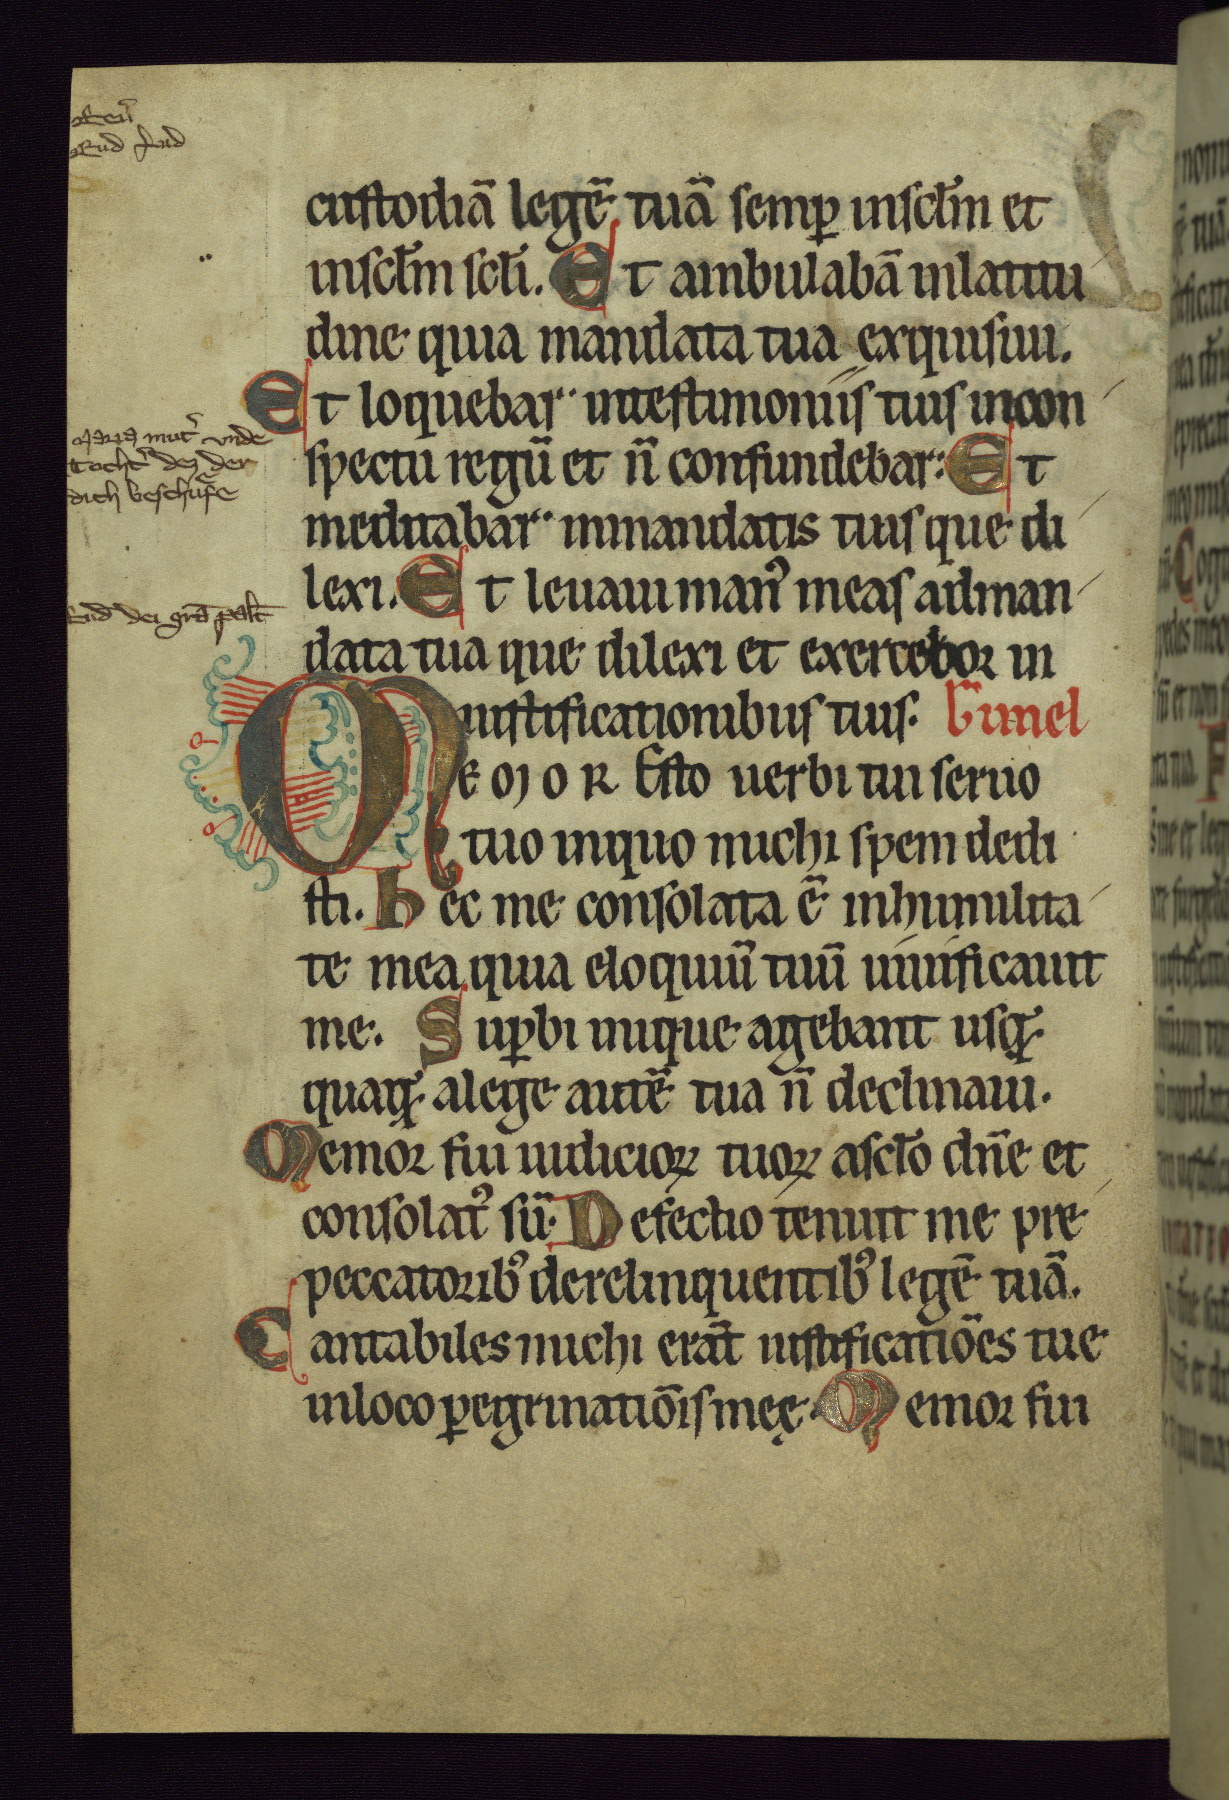 custodiā legē tuā semp insclm et
insclm scli. Et ambulabā inlatitu
dine quia mandata tua exquisiui.
Et loquebar intestimoniis tuis incon
spectu regū et n̄ confundebar. Et
meditabar inmandatis tuis que di
lexi. Et leuaui man᾽ meas adman
data tua que dilexi et exercebor in
iustificationibus tuis.
MEMOR Esto uerbi tui seruo
tuo inquo michi spem dedi
sti. hec me consolata ē inhumilita
te mea quia eloquiū tuū uiuificauit
me. Suꝑbi inique agebant usqꝫ
quaqꝫ alege autē tua n̄ declinaui.
Memor fui iudicioꝝ tuoꝝ asclo dn̄e et
consolat᾽ sū. Defectio tenuit me pre
peccatorib᾽ derelinquentib᾽ legē tuā.
Cantabiles michi erāt iustificatiōes tue
inloco ꝑegrinatiōis meę. Memor fui
maria mut᾽ vnde
tocht᾽ dez der
dich beschufe